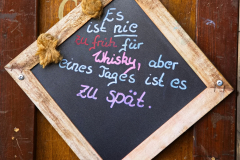 Es
ist nie
zu früh für
Whisky, aber
eines Tages ist es
zu spät.